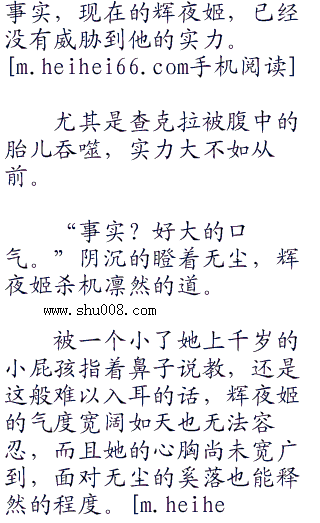 事实，现在的辉夜姬，已经
没有威胁到他的实力。
[m.heihei66.com手机阅读]
尤其是查克拉被腹中的
胎儿吞噬，实力大不如从
前。
“事实？好大的口
气。”阴沉的瞪着无尘，辉
夜姬杀机凛然的道。
www.shu008.com
被一个小了她上千岁的
小屁孩指着鼻子说教，还是
这般难以入耳的话，辉夜姬
的气度宽阔如天也无法容
忍，而且她的心胸尚未宽广
到，面对无尘的奚落也能释
然的程度。[m.heihe